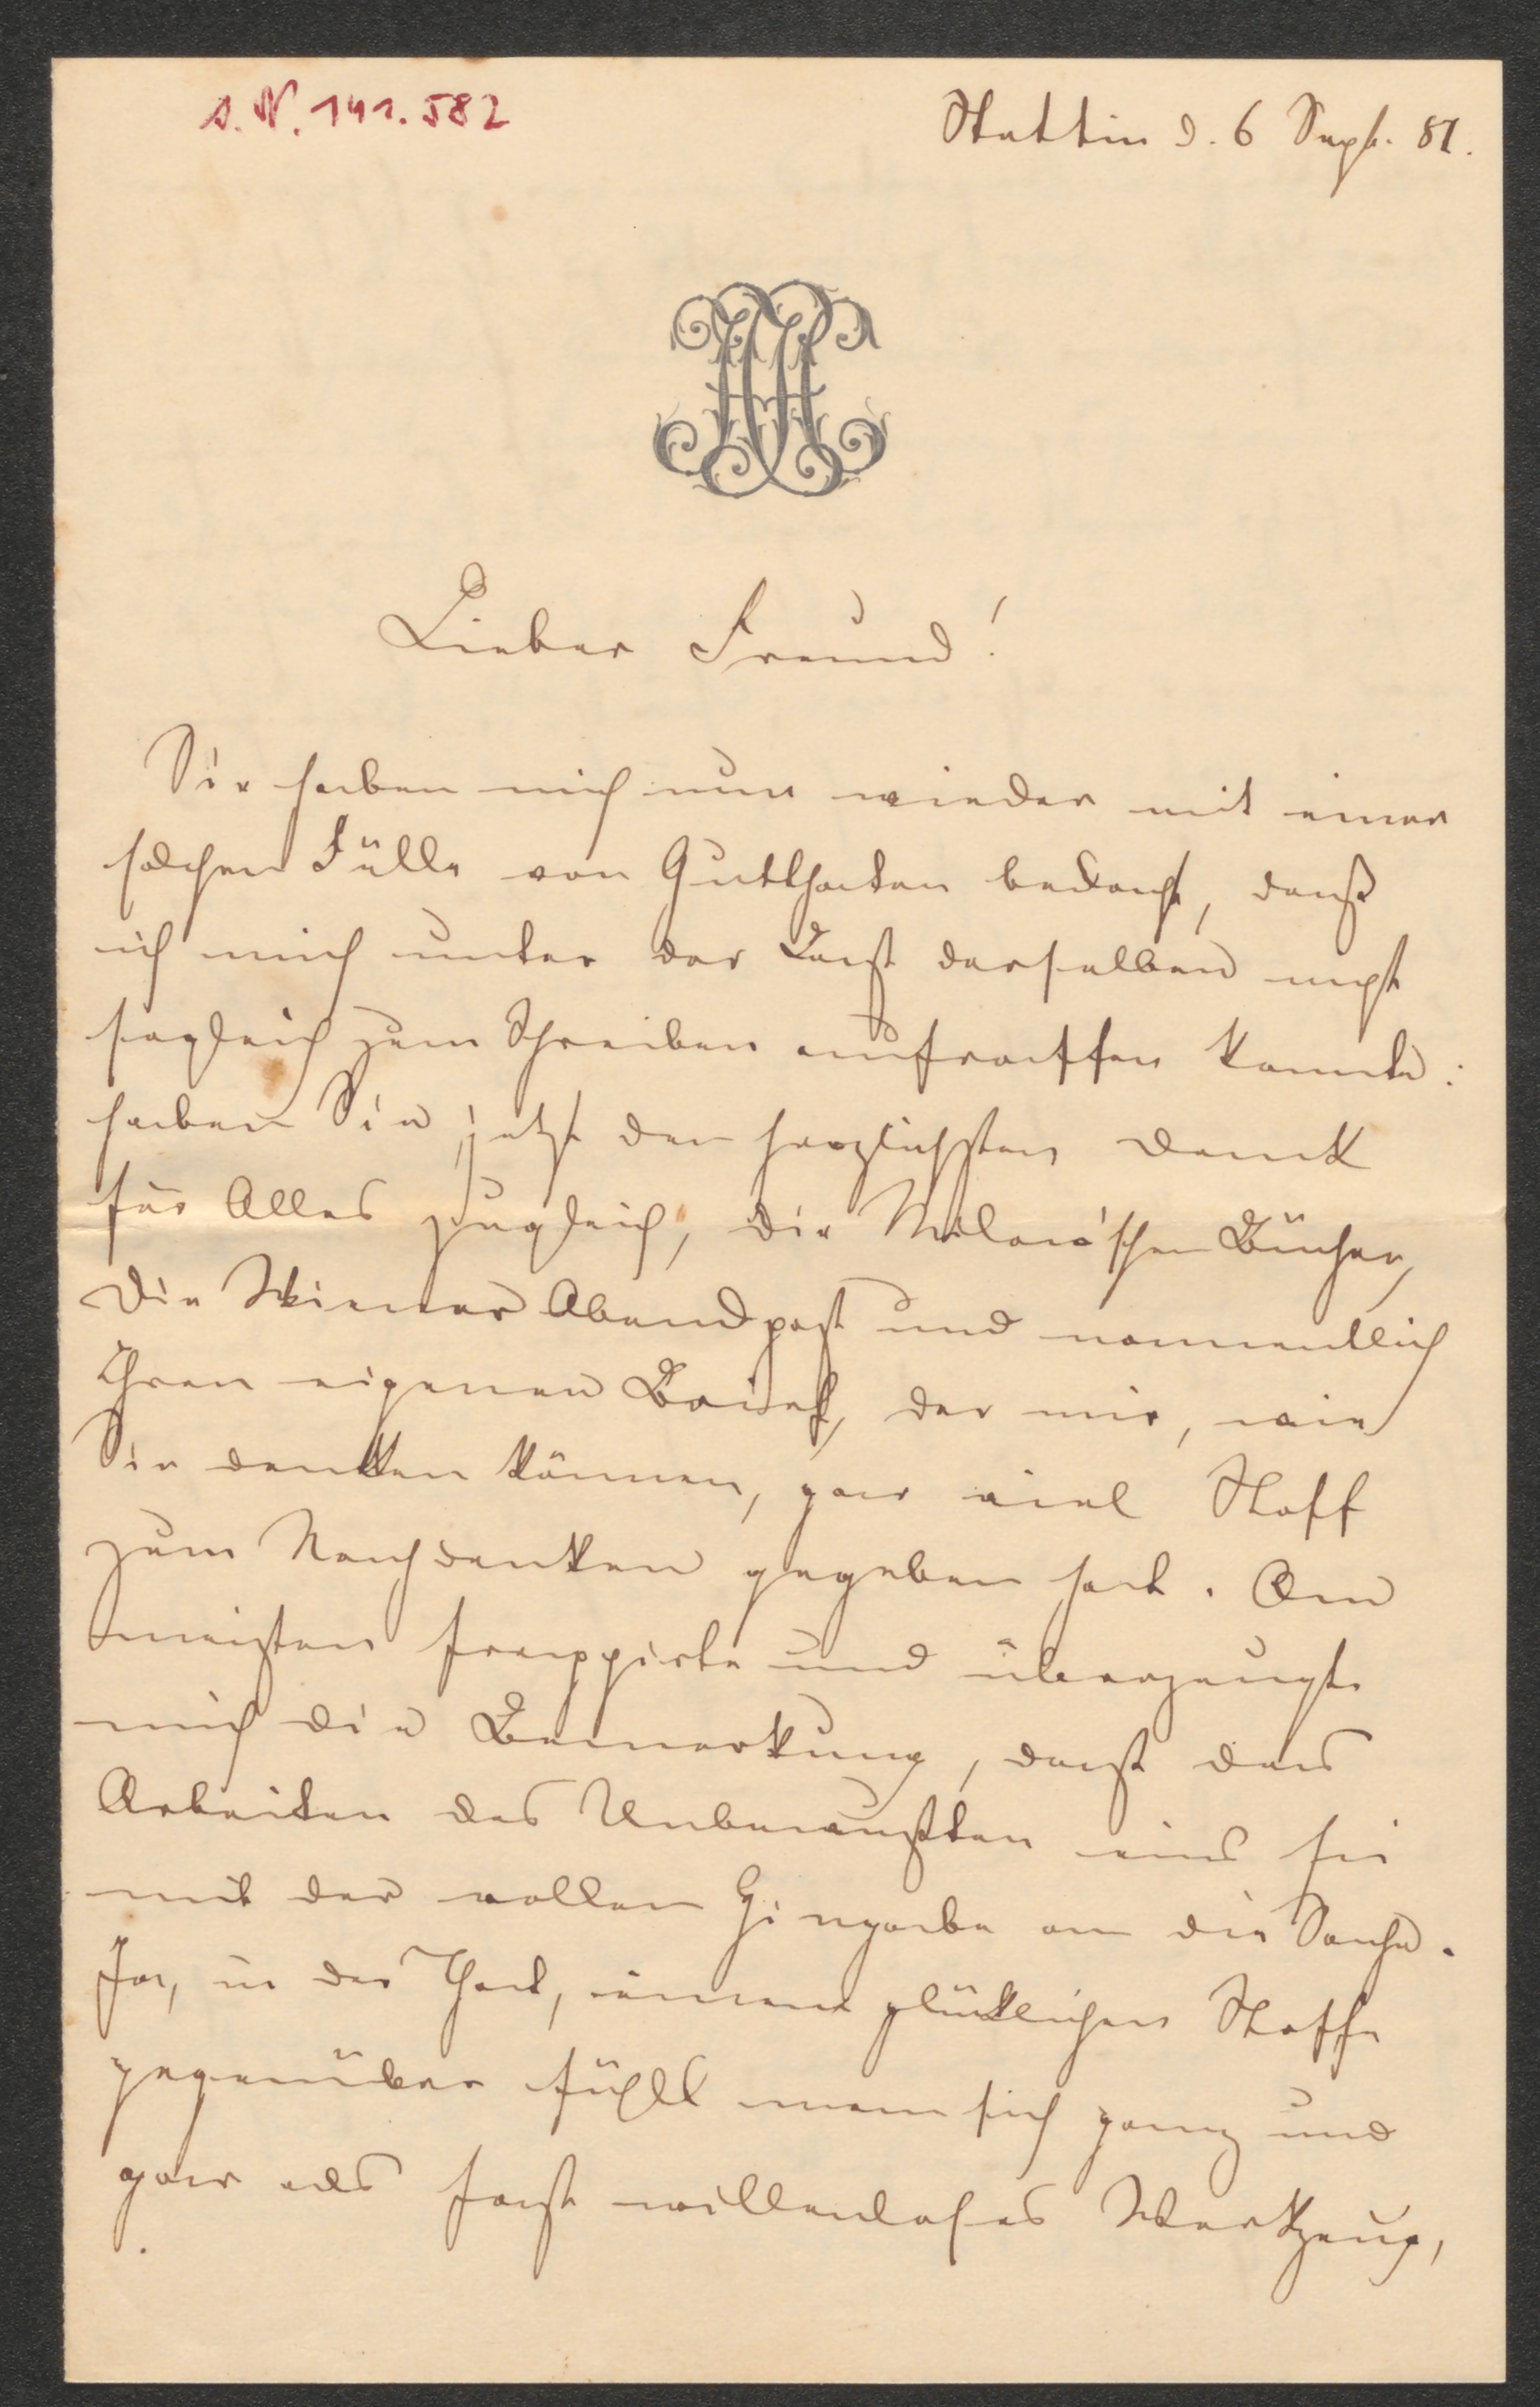 s. N. 141.582
Stettin d. 6 Sept. 87.
Lieber Freund!
Sie haben mich nun wieder mit einer
solchen Fülle von Gutthaten bedacht, daß
ich mich unter der Last derselben nicht
sogleich zum Schreiben aufraffen konnte:
haben Sie jetzt den herzlichsten Dank
für Alles zugleich, die Milow'schen Bücher,
die Wiener Abendpost und namentlich
Ihren eigenen Brief, der mir, wie
Sie denken können, gar viel Stoff
zum Nachdenken gegeben hat. Am
meisten frappirte und überzeugte
mich die Bemerkung, daß das
Arbeiten des Unbewußten eins sei
mit der vollen Hingabe an die Sache.
Ja, in der That, einem glücklichen Stoffe
gegenüber fühlt man sich ganz und
gar als fast willenloses Werkzeug,